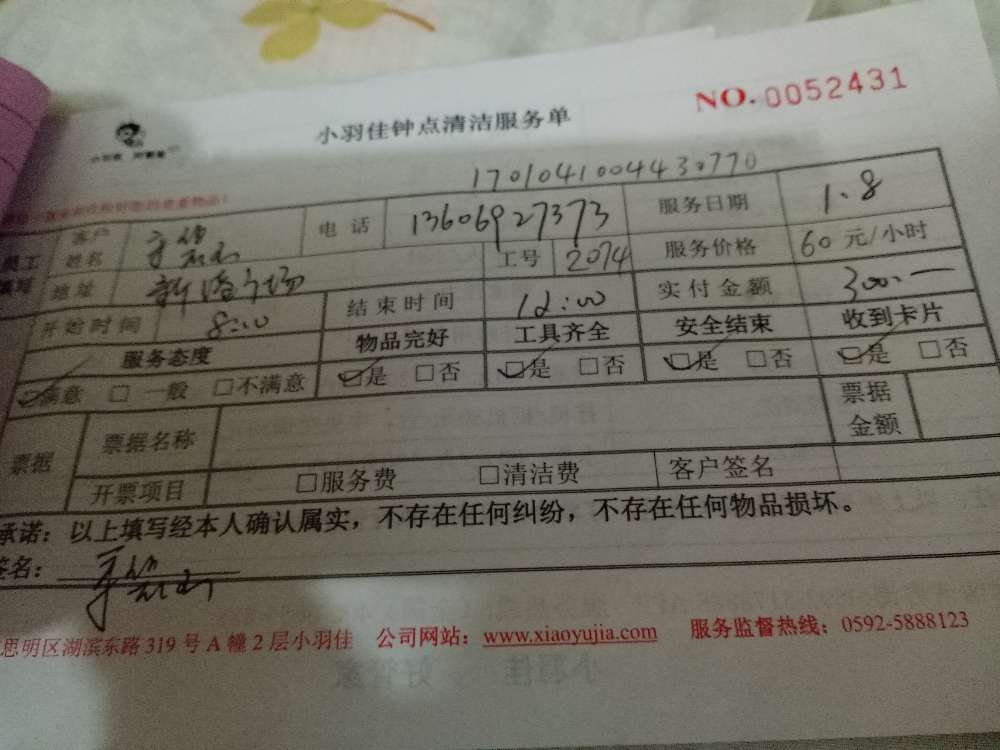 NO.0052431
小羽佳钟点清洁服务单
1701041004430770
客户姓名 电话 13606927373 服务日期 1.8
地址 新港广场 工号 2074 服务价格 60元/小时
开始时间 8:00 结束时间 12:00 实付金额 300.一
服务态度 物品完好 工具齐全 安全结束 收到卡片
满意 □ 一般 □不满意 □是 □否 □是 □否 □是 □否 □是 □否
票据 票据名称 票据金额
开票项目 □服务费 □清洁费 客户签名
承诺：以上填写经本人确认属实，不存在任何纠纷，不存在任何物品损坏。
签名：
思明区湖滨东路319号A幢2层小羽佳 公司网站：www.xiaoyujia.com 服务监督热线：0592-5888123